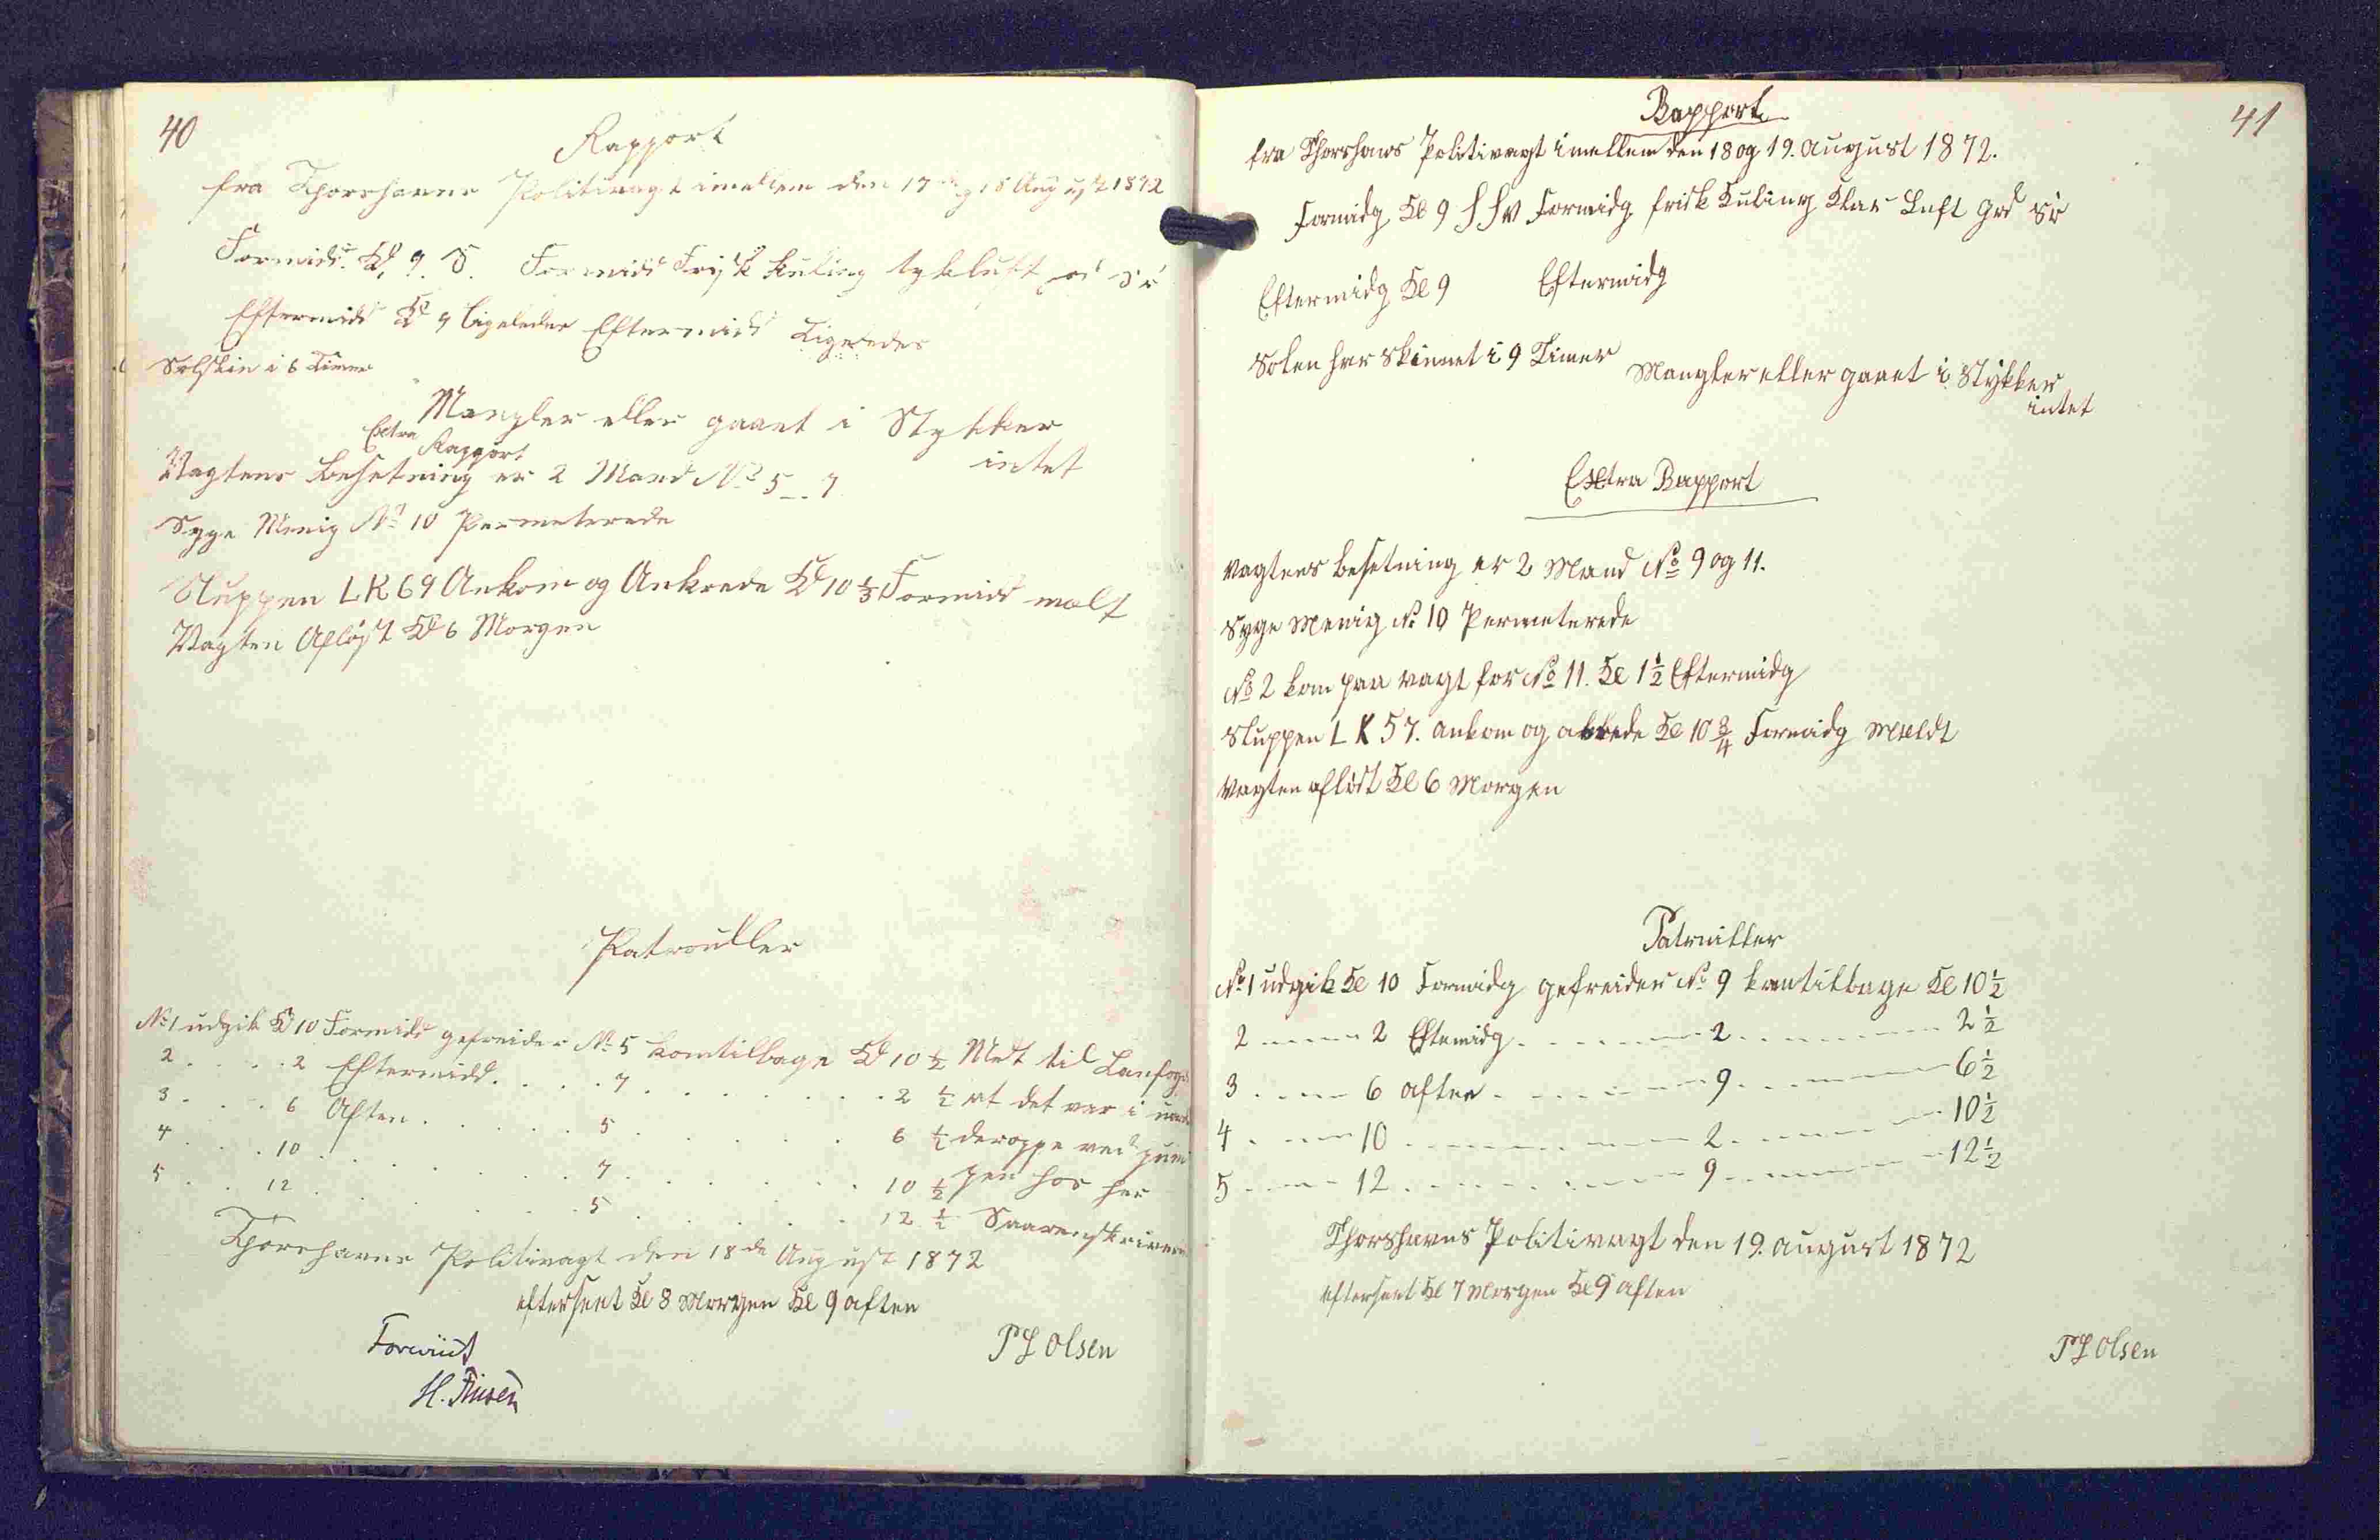 40
Rapport
fra Thorshavns Politivagt imellem den 17 og 18 August 1872
Formidd. Kl. 9. S. Formidd Frisk kuling tykluft og Sø
Eftermidd Kl 9 Ligeledes Eftermidd Ligeledes
Solskin i 6 Timer
Mangler eller gaaet i Stykker
intet
Extra Rapport
Vagtens Besetning er 2 Mand No 5 - 7
Syge Menig No 10 Permeterede
Sluppen LK 69 Ankom og Ankrede Kl 10 1/2 Formidd melt
Vagten Afløst Kl 6 Morgen
Patrouller
No 1 udgik Kl 10 Formidd gefreider No 5 komtilbage Kl 10 1/2 Melt til Lanfogd
2 . . . . 2 Eftermidd. . . . . 7 . . . . . . . 2 1/2 at det var i
3 . . . . 6 Aften . . . . . 5 . . . . . . 6 1/2 deroppe ved pum
4 . . . . 10 . . . . . . 7 . . . . . . 10 1/2 pen hos her
5 . . . 12 . . . . . . 5 . . . . . . 12 1/2 Saarenskriveren
Thorshavns Politivagt den 18de August 1872
efterseet Kl 8 Morgen Kl 9 aften
PJ Olsen
Forevist
H. Finsen
41
Rapport
fra Thorshavns Politivagt imellem den 18 og 19. august 1872.
Formidg Kl 9 SSV Formidg frisk Kuling Klar Luft god Sø
Eftermidg Kl 9 Eftermidg
Solen har skinnet i 9 Timer
Mangler eller gaaet i Stykker
intet
Extra Rapport
Vagtens besetning er 2 Mand No 9 og 11.
Syge Menig No 10 Permeterede
No 2 kom paa vagt for No 11. Kl 1 1/2 Eftermidg
Sluppen LK 57. ankom og akkrede Kl 10 3/4 Formidg Meldt
Vagten afløst Kl 6 Morgen
Patruiller
No 1 udgik Kl 10 Formidg gefreider No 9 komtilbage Kl 10 1/2
2 ---- 2 Eftemidg. ---- 2. ---- 2 1/2
3 ---- 6 aften. ---- 9. ---- 6 1/2
4 ---- 10 ---- 2. ---- 10 1/2
5 ---- 12 ---- 9. ---- 12 1/2
Thorshavns Politivagt den 19. august 1872
efterseet Kl 7 Morgen Kl 9 aften
PJ Olsen